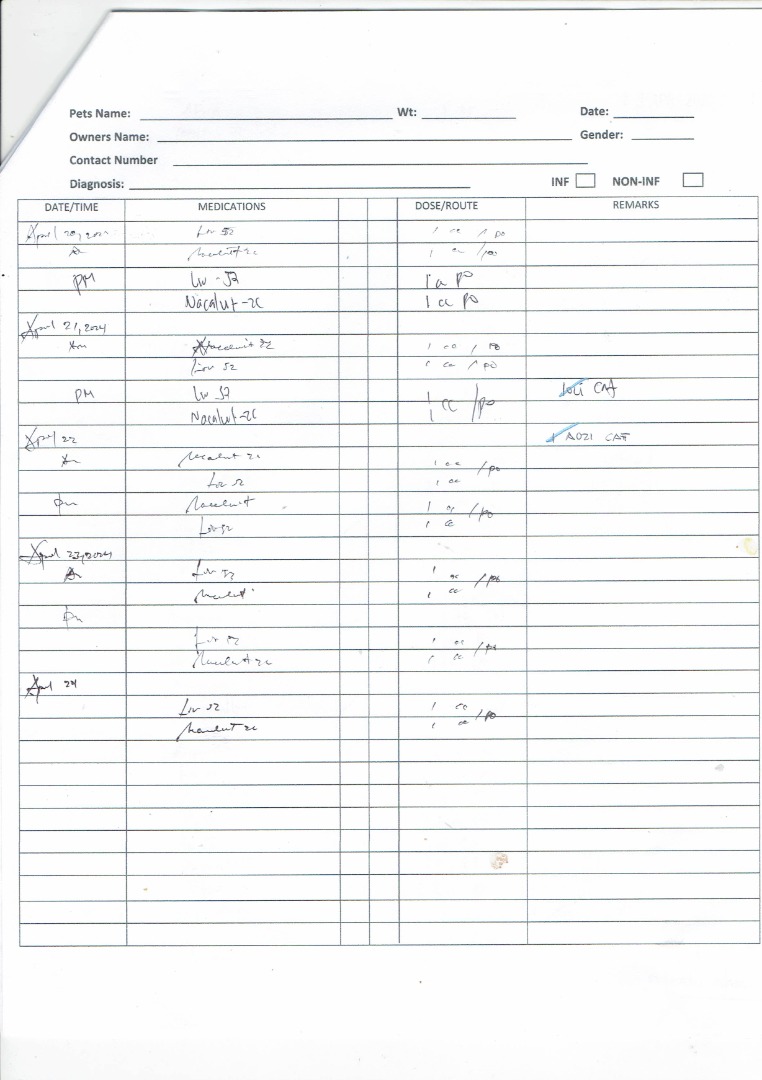 Pets Name: Wt: Date:
Owners Name: Gender:
Contact Number
Diagnosis: INF NON-INF
DATE/TIME MEDICATIONS DOSE/ROUTE REMARKS
April 20, 2024 Liv 52 1 cc / po
1 cc / po
PM Liv - 52 1 cc PO
Nacalvit-2C 1 cc PO
April 21, 2024
Am Nacalvit 2C 1 cc / PO
Liv 52 1 cc / PO
PM Liv 52 1 cc / po CAT
Nacalvit-2C 1
April 22 AOZI CAT
Am Nacalvit 2C 1 cc / po
Liv 52 1 cc
pm Nacalvit 1 cc / po
Liv 52 1 cc
April 23, 2024
Liv 52 1 cc / po
Nacalvit 1 cc
pm
Liv 52 1 cc / po
Nacalvit 2C 1 cc
April 24
Liv 52 1 cc / po
Nacalvit 2C 1 cc